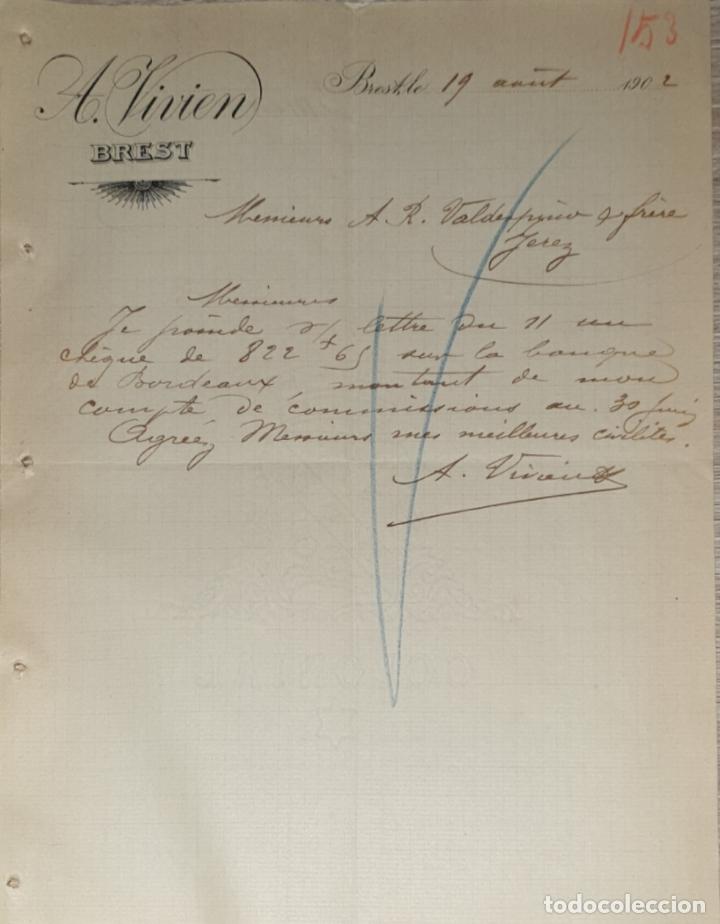 153
A. Vivien
BREST
Brest, le 19 août 1902
Messieurs A. R. Valdespino & frère
Jerez
Messieurs
Je possède v/ lettre du 11 un
chèque de 822 + 65 sur la banque
de Bordeaux montant de mon
compte de commissions au 30 juin
Agréez Messieurs mes meilleures civilités.
A. Vivien
todocoleccion